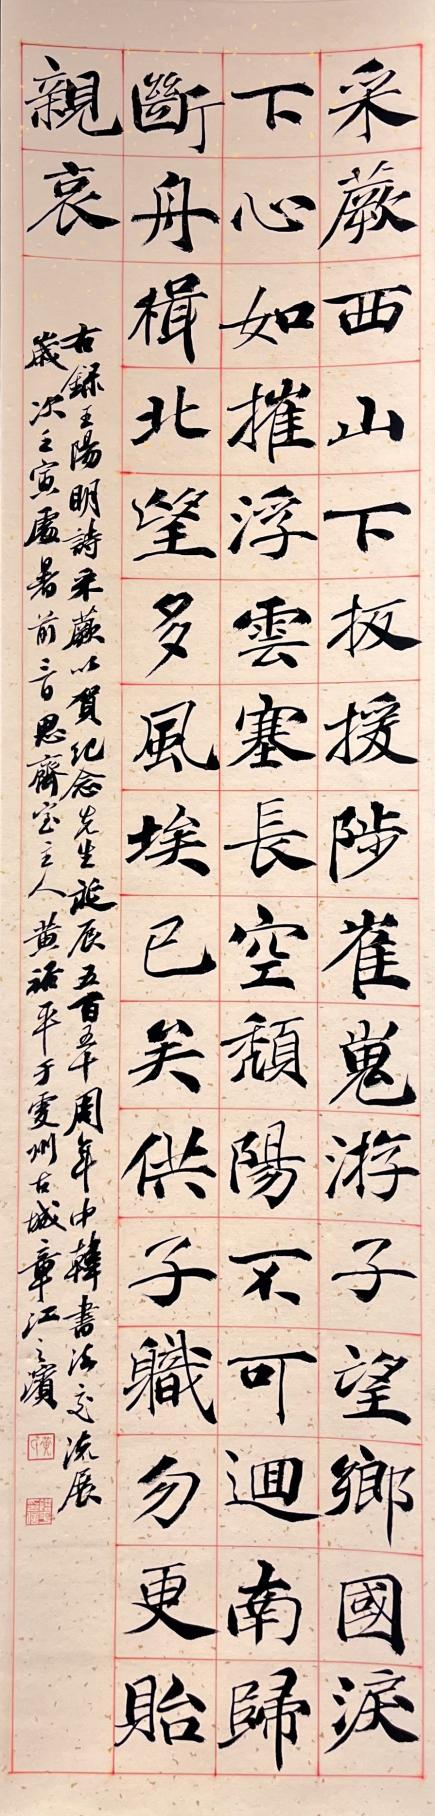 采蕨西山下扳援陟崔嵬游子望鄉國淚
下心如摧浮雲塞長空頹陽不可迴南歸
斷舟楫北望多風埃已矣供子職勿更貽
親哀
右録王陽明詩采蕨以賀紀念先生誕辰五百五十周年中韓書法交流展
歲次壬寅處暑前三日思齋室主人黄裕平于虔州古城章江之濱